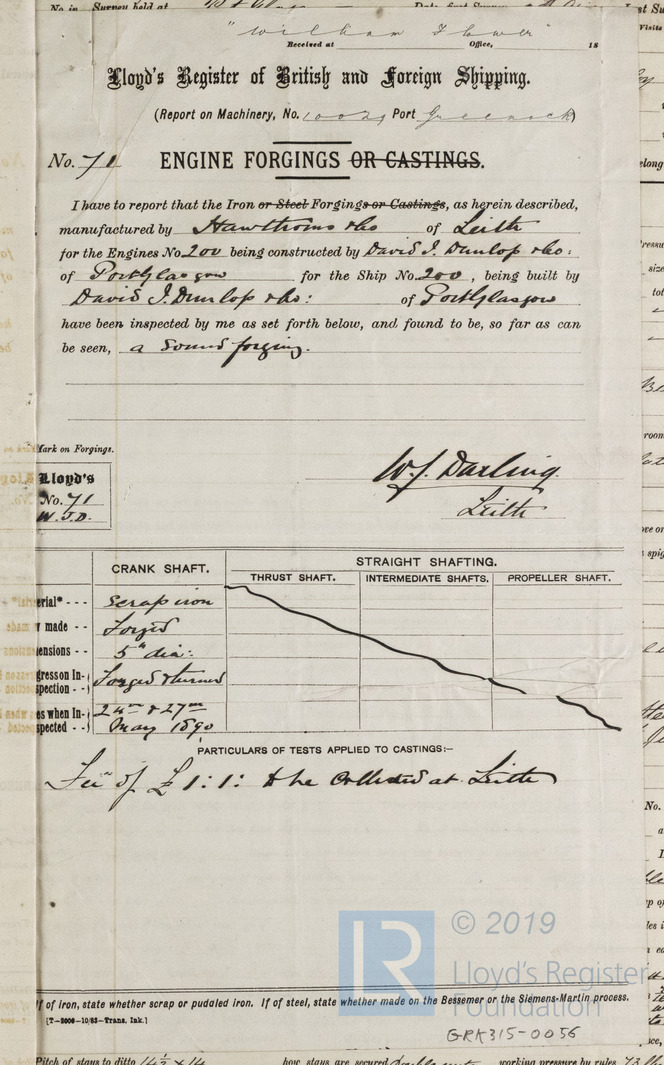 "William Flower"
Received at Office, 18
Lloyd's Register of British and Foreign Shipping.
(Report on Machinery, No. 10021 Port Greenock)
No. 71 ENGINE FORGINGS OR CASTINGS.
I have to report that the Iron or Steel Forgings or Castings, as herein described,
manufactured by Hawthorns & Co of Leith
for the Engines No. 200 being constructed by David J. Dunlop & Co:
of Port Glasgow for the Ship No. 200, being built by
David J. Dunlop & Co: of Port Glasgow
have been inspected by me as set forth below, and found to be, so far as can
be seen, a Sound forging.
Mark on Forgings.
Lloyd's
No. 71
W.J.D.
W.J. Darling
Leith
CRANK SHAFT. STRAIGHT SHAFTING.
THRUST SHAFT. INTERMEDIATE SHAFTS. PROPELLER SHAFT.
erial* - - - Scrap iron
made - - Forged
ensions - - 5" dia:
gress on In-
spection - - Forged & turned
es when In-
spected - - 24th & 27th
May 1890
PARTICULARS OF TESTS APPLIED TO CASTINGS:—
Fee of £1:1: to be Collected at Leith
If of iron, state whether scrap or pudaled iron. If of steel, state whether made on the Bessemer or the Siemens-Martin process.
[T—2006—10/83—Trans. Ink.]
© 2019
Lloyd's Register
Foundation
GRK315-0056
Pitch of stays to ditto 14½ x 14 how stays are secured double nuts working pressure by rules